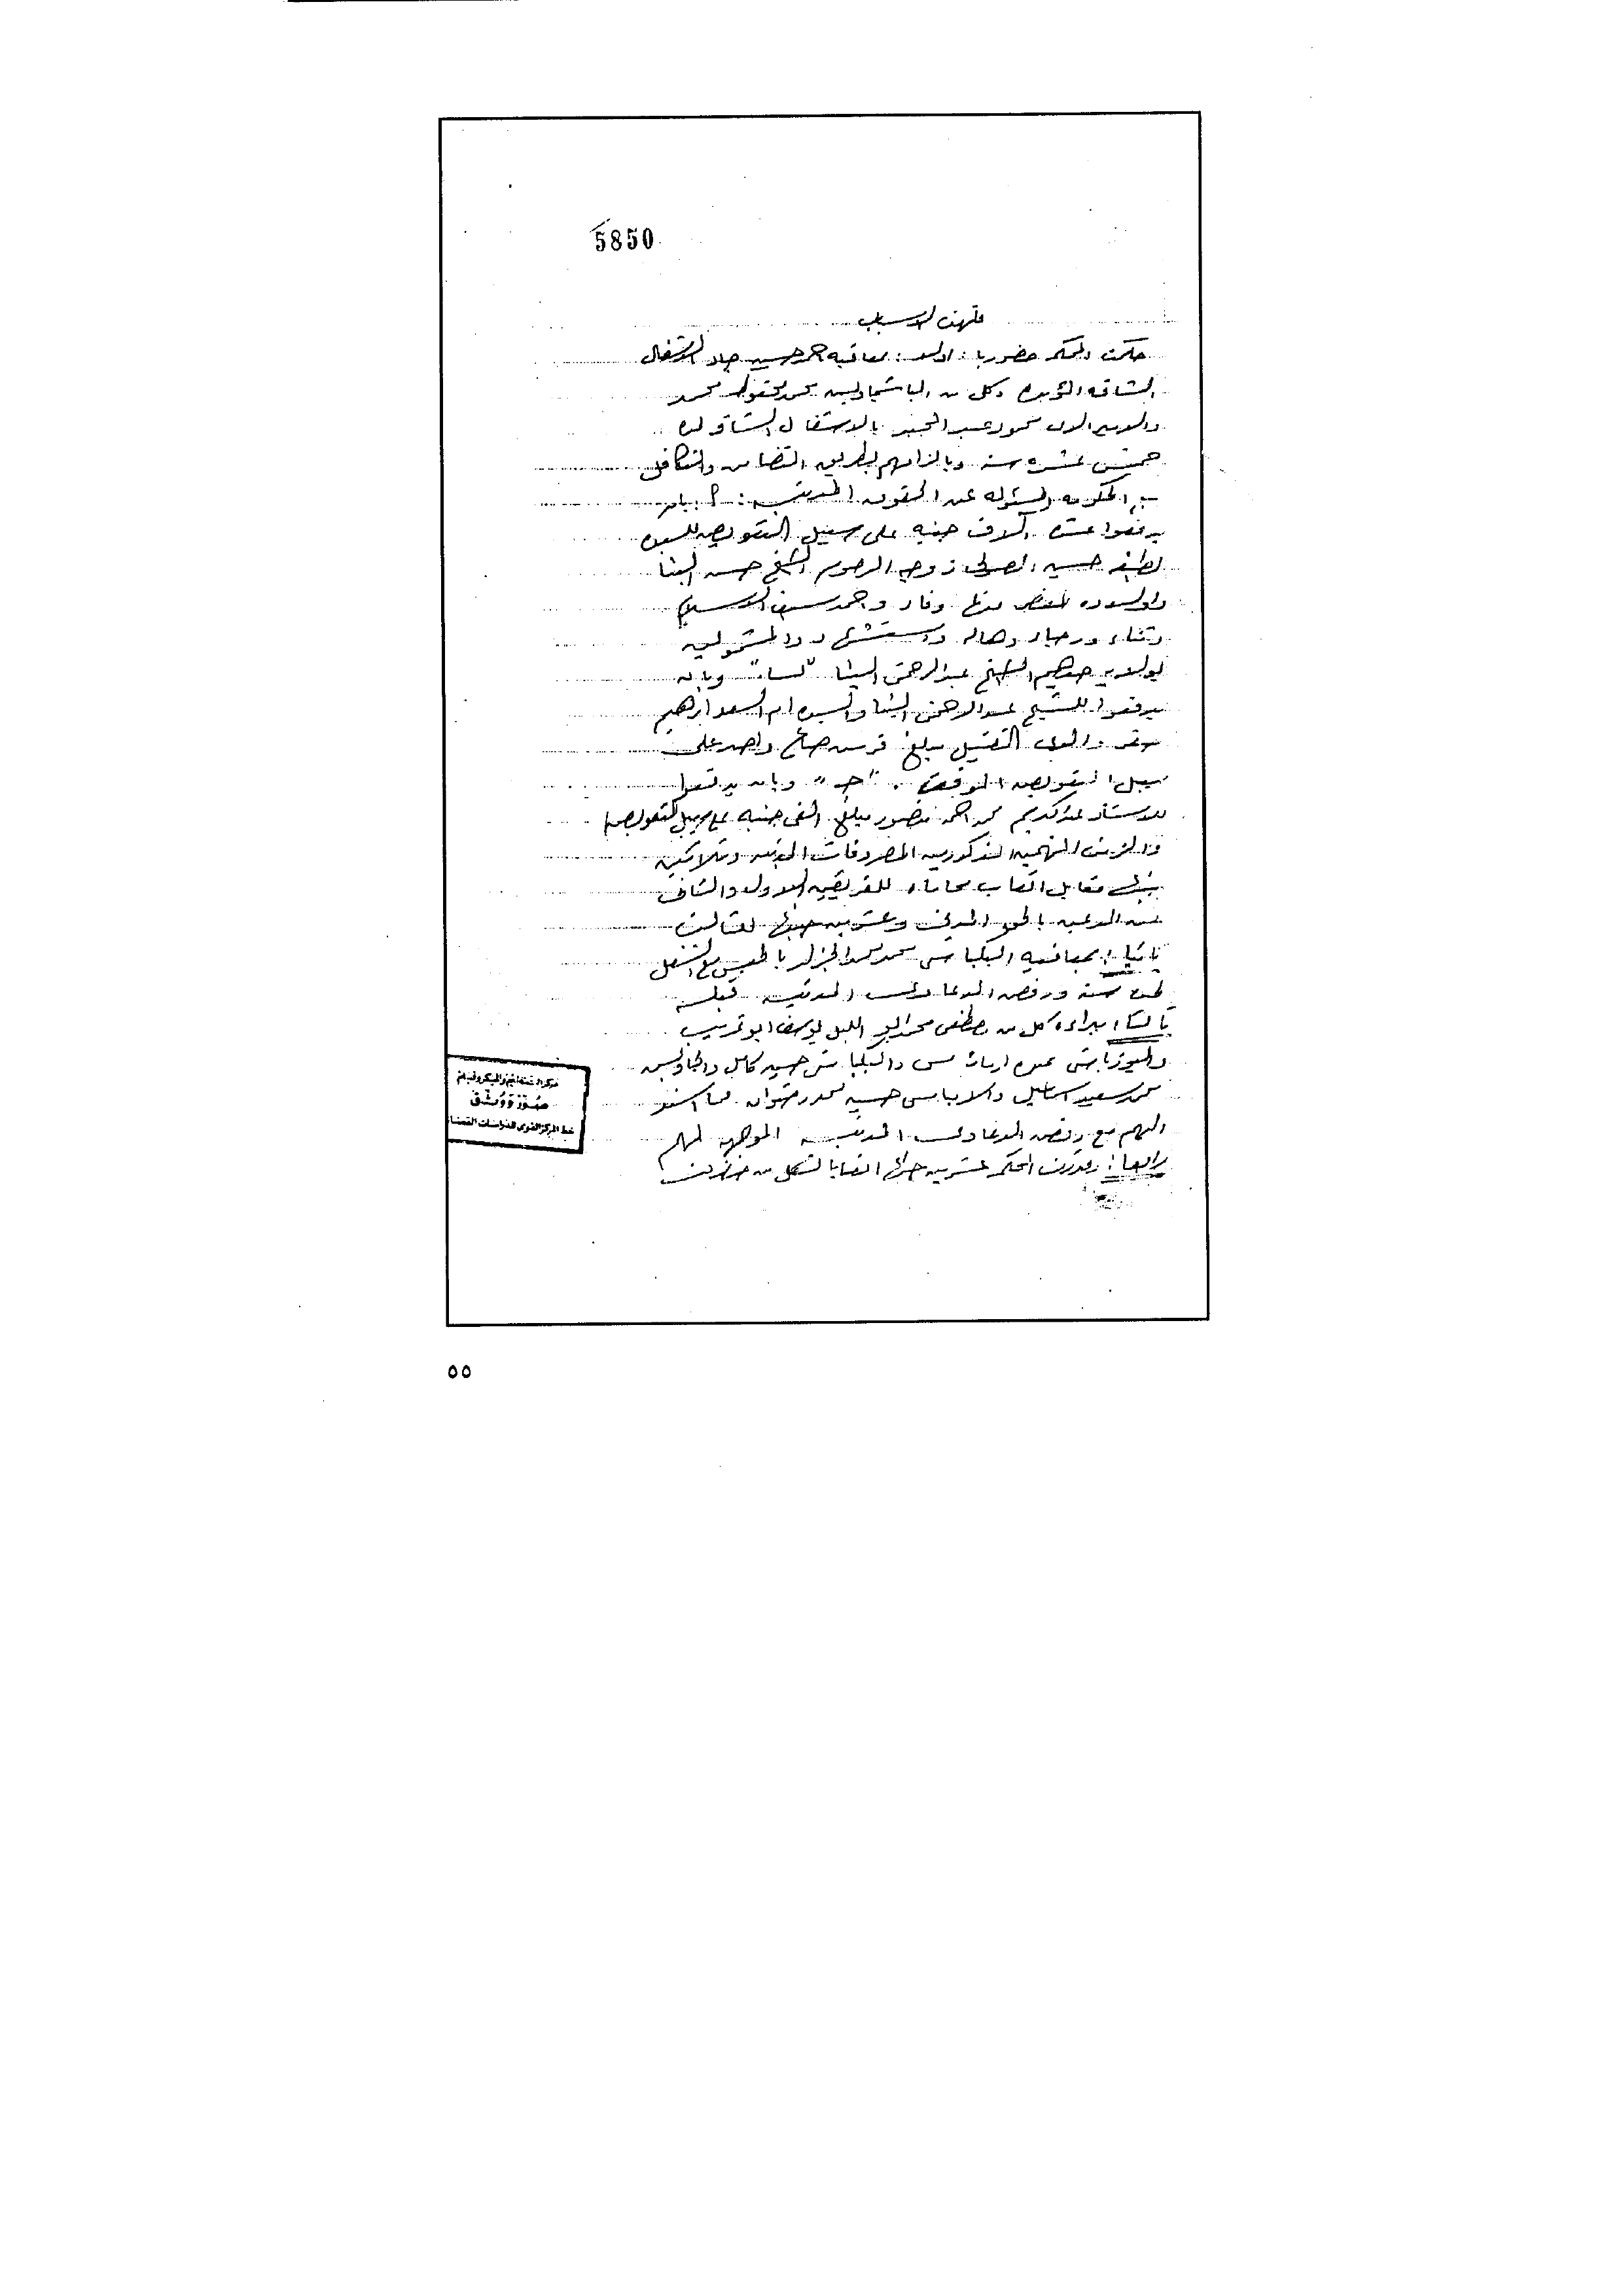 5850
فلهذه الاسباب
حكمت المحكمة حضوريا : اولا : بمعاقبة احمد حسين جاد بالاشغال
الشاقة المؤبدة وكل من الباشجاويش محمد محفوظ محمد
والاميرالاى محمود عبد المجيد بالاشغال الشاقة لمدة
خمس عشرة سنة وبالزامهم بطريق التضامن والتكافل
مع الحكومة المسئولة عن الحقوق المدنية : أ بأن
يدفعوا عشرة آلاف جنيه على سبيل التعويض للسيدة
لطيفة حسين الصولى زوجة المرحوم الشيخ حسن البنا
واولاده القصر منها وفاء و احمد سيف الاسلام
وثناء ورجاء وهاله واستشهاد المشمولين
بولاية جدهم الشيخ عبد الرحمن البنا وبان
يدفعوا للشيخ عبد الرحمن البنا والسيدة ام السعد ابراهيم
صقر والدى القتيل مبلغ قرش صاغ واحد على
سبيل التعويض المؤقت . " جـ " وبان يدفعوا
للاستاذ عبد الكريم محمد احمد منصور مبلغ الفى جنيه على سبيل التعويض
والزمت المتهمين المذكورين المصروفات المدنية وثلاثين
جنيها مقابل اتعاب محاماه للفريقين الاول والثانى
من المدعين بالحق المدنى وعشرين جنيها للثالث
ثانيا : بمعاقبة البكباشى محمد محمد الجزار بالحبس مع الشغل
لمدة سنة ورفض الدعاوى المدنية قبله
ثالثا : ببراءة كل من مصطفى محمد ابو الليل يوسف ابو غريب
واليوزباشى عبده ارمانيوس والبكباشى حسين كامل والجاويش
محمد سعيد اسماعيل والامباشى حسين محمدين رضوان مما اسند
اليهم مع رفض الدعاوى المدنية الموجهة لهم
رابعا : وقدرت المحكمة عشرين جنيها اتعابا لكل من حضرات
مركز التنظيم والميكروفيلم
صورة وثائق
٥٥